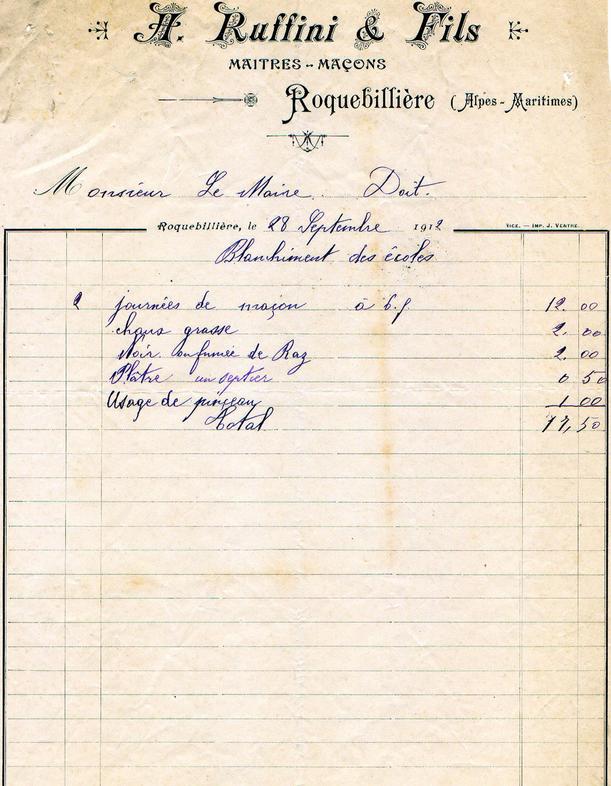 A. Ruffini & Fils
MAITRES-MAÇONS
Roquebillière (Alpes-Maritimes)
Monsieur Le Maire Doit.
Roquebillière, le 28 Septembre 1912
NICE. — IMP. J. VENTRE.
Blanchiment des écoles
2 journées de maçon à 6 f 12. 00
chaux grasse 2. 00
Noir de Raz 2. 00
Plâtre un septier 0 50
Usage de pinceau 1 00
Total 17,50